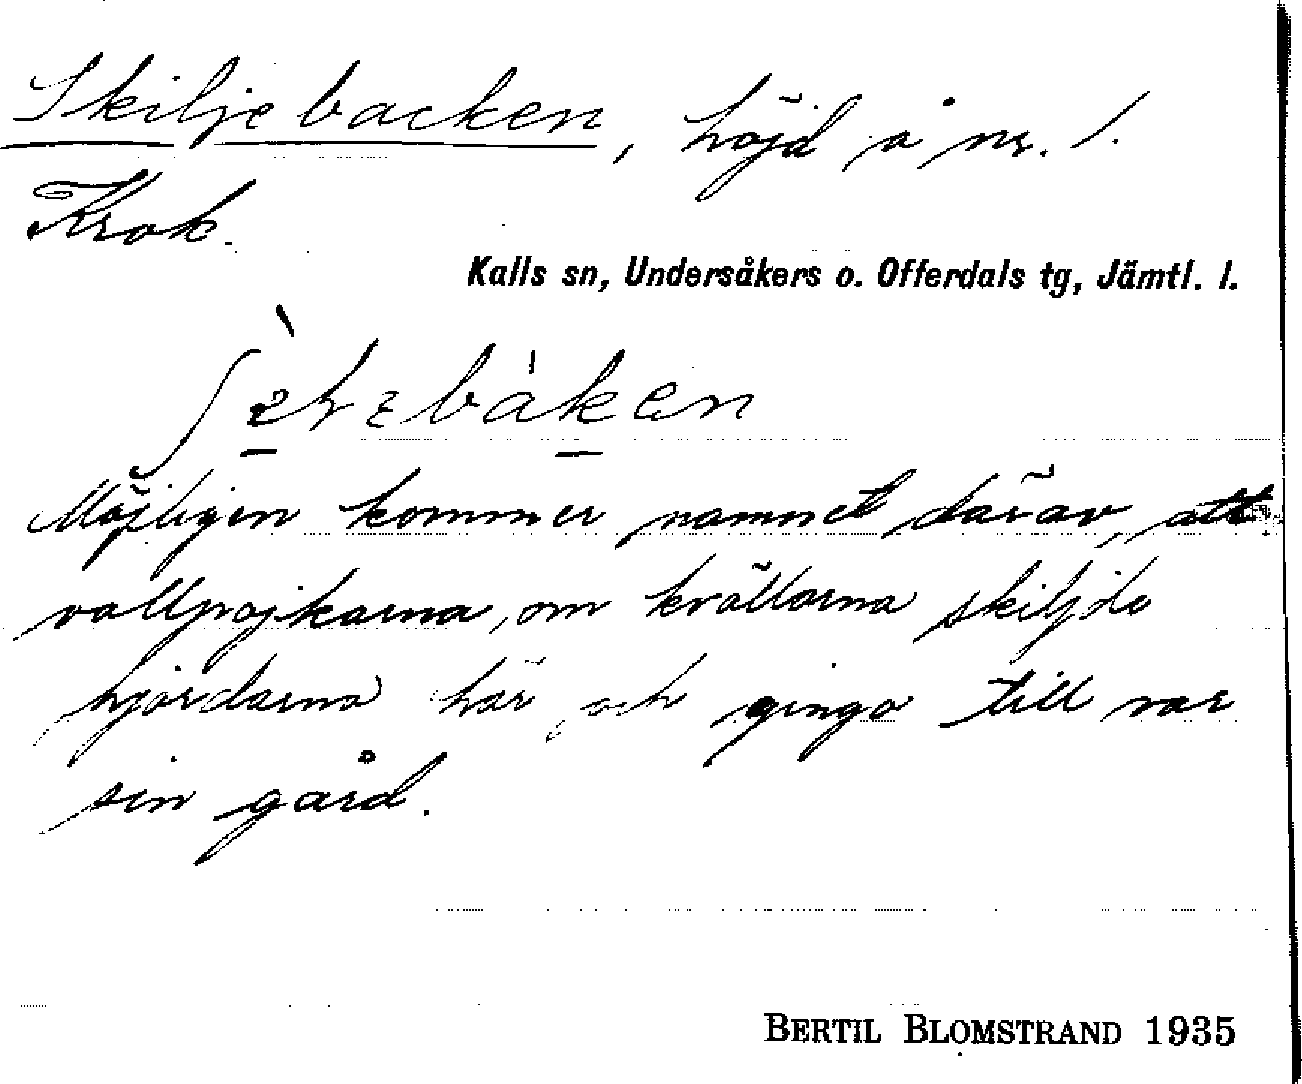 Skiljebacken, höjd å nr. 1.
Krok.
Kalls sn, Undersåkers o. Offerdals tg, Jämtl. l.
Möjligen kommer namnet därav, att
vallpojkarna, om kvällarna skiljde
hjordarna här, och gingo till var
sin gård.
BERTIL BLOMSTRAND 1935